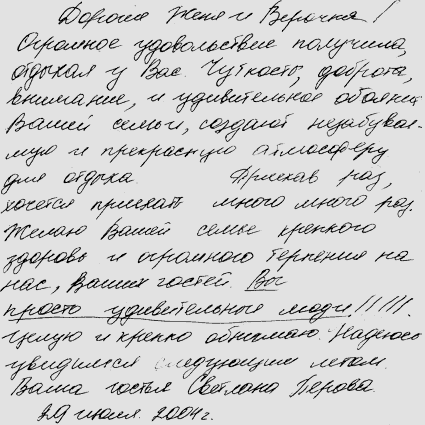 Дорогие Женя и Верочка!
Огромное удовольствие получила,
отдыхая у Вас. Чуткость, доброта,
внимание, и удивительное обаяние
Вашей семьи, создают незабывае-
мую и прекрасную атмосферу
для отдыха. Приехав раз,
хочется приехать много много раз.
Желаю Вашей семье крепкого
здоровья и огромного терпения на
нас, Ваших гостей. Вы
просто удивительные люди!!!!!
Целую и крепко обнимаю. Надеюсь
увидимся следующим летом.
Ваша гостья Светлана Перова.
29 июля 2004 г.